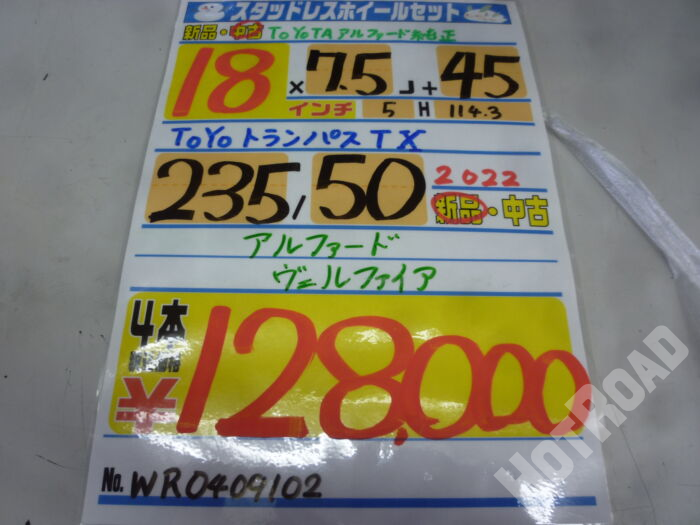 スタッドレスホイールセット
新品・中古 ToYoTA アルファード純正
18 × 7.5 J + 45
インチ 5 H 114.3
ToYo トランパス TX
235/50 2022
新品・中古
アルファード
ヴェルファイア
4本
¥128,000
No. WR0409102
HOTROAD